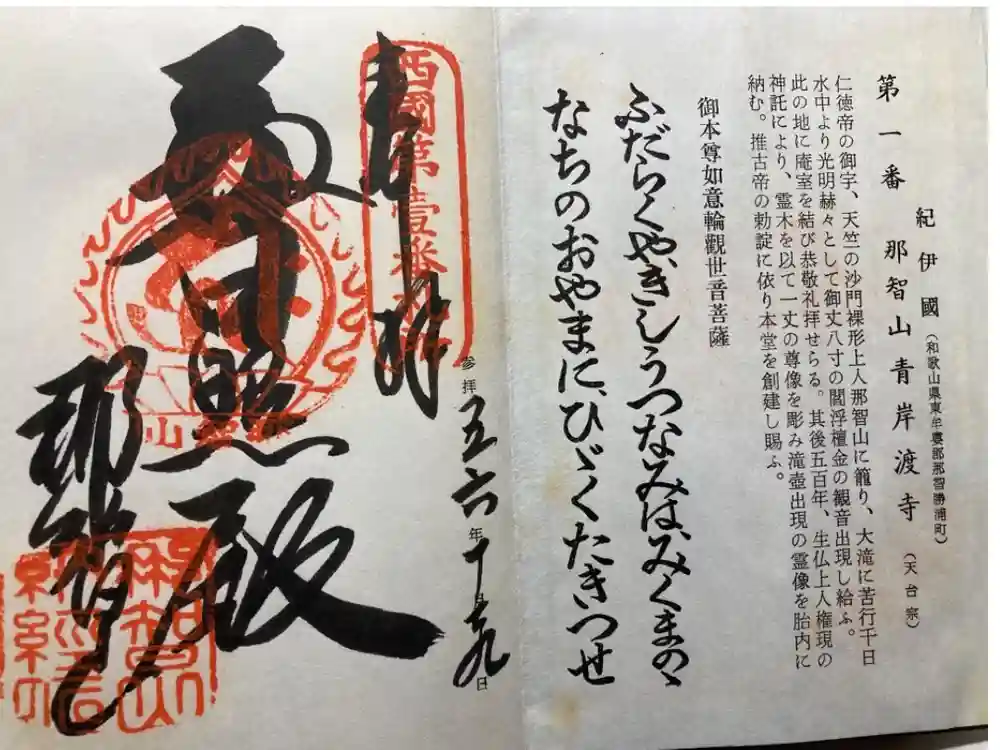 紀伊國（和歌山県東牟婁郡那智勝浦町）
第一番 那智山青岸渡寺（天台宗）
仁徳帝の御宇、天竺の沙門裸形上人那智山に籠り、大滝に苦行千日
水中より光明赫々として御丈八寸の閻浮檀金の観音出現し給ふ。
此の地に庵室を結び恭敬礼拝せらる。其後五百年、生仏上人権現の
神託により、霊木を以て一丈の尊像を彫み滝壺出現の霊像を胎内に
納む。推古帝の勅諚に依り本堂を創建し賜ふ。
御本尊如意輪觀世音菩薩
ふだらくやきしうつなみは、みくまのゝ
なちのおやまに、ひゞくたきつせ
奉拝
西國第壹番札所
参拝五六年十月十九日
照殿
那智山
那智山